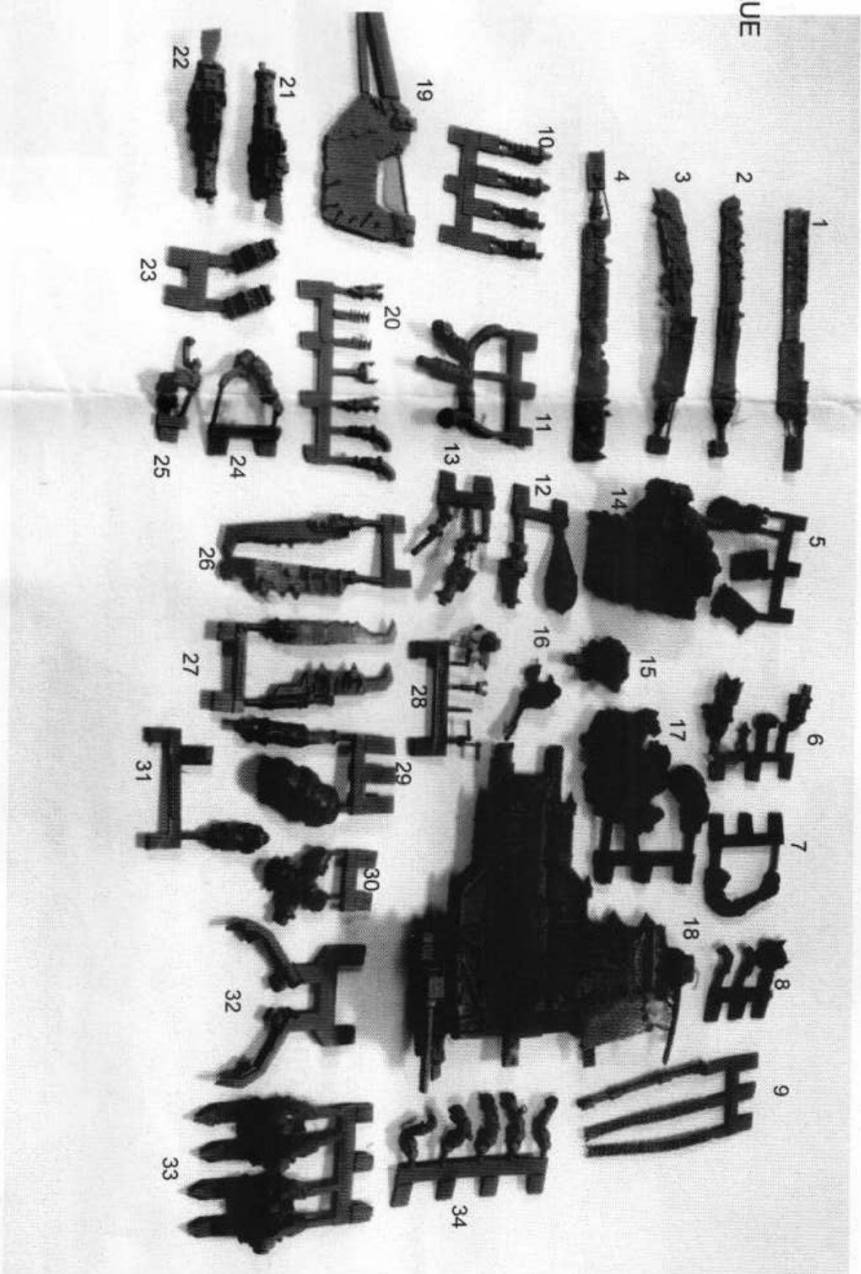 UE
1
2
3
4
5
6
7
8
9
10
11
12
13
14
15
16
17
18
19
20
21
22
23
24
25
26
27
28
29
30
31
32
33
34